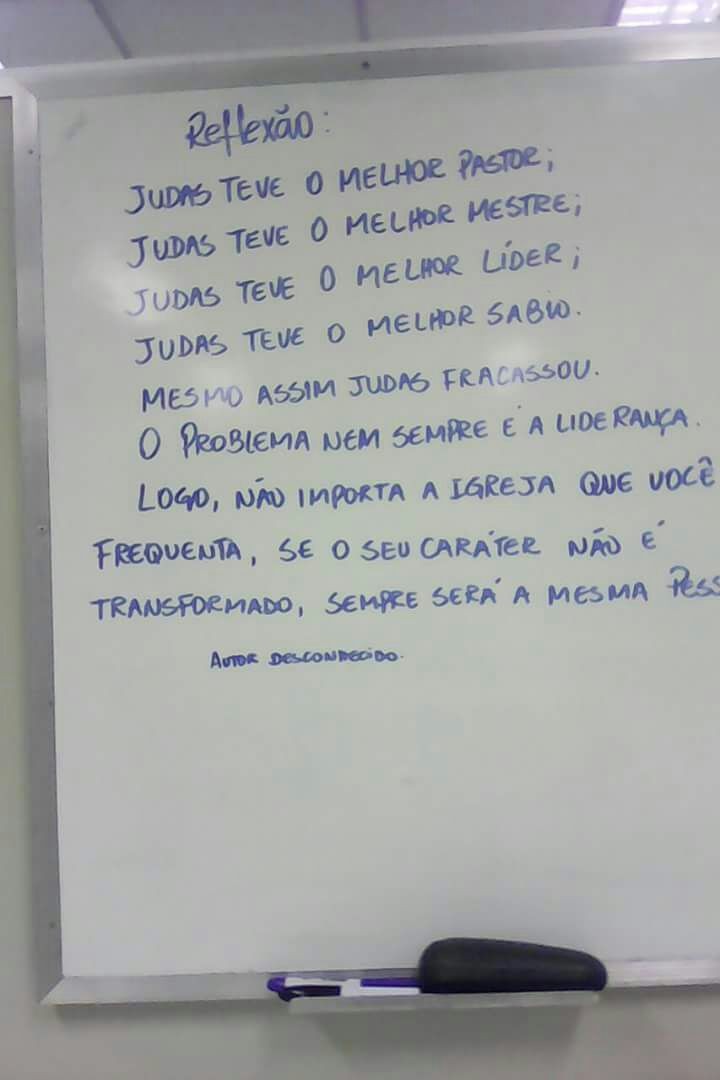 Reflexão:
JUDAS TEVE O MELHOR PASTOR;
JUDAS TEVE O MELHOR MESTRE;
JUDAS TEVE O MELHOR LÍDER;
JUDAS TEVE O MELHOR SABIO.
MESMO ASSIM JUDAS FRACASSOU.
O PROBLEMA NEM SEMPRE É A LIDERANÇA.
LOGO, NÃO IMPORTA A IGREJA QUE VOCÊ
FREQUENTA, SE O SEU CARÁTER NÃO É
TRANSFORMADO, SEMPRE SERÁ A MESMA PESS
AUTOR DESCONHECIDO.